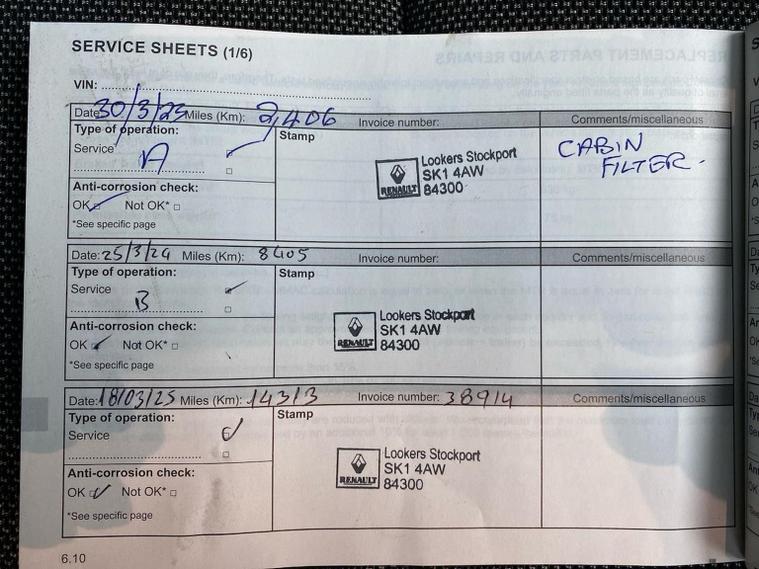 SERVICE SHEETS (1/6)
VIN:
Date: 30/3/23 Miles (Km): 2,406 Invoice number: Comments/miscellaneous
Type of operation:
Stamp
Service
A
Lookers Stockport
SK1 4AW
84300
RENAULT
CABIN
FILTER.
Anti-corrosion check:
OK Not OK*
*See specific page
Date: 25/3/24 Miles (Km): 8405 Invoice number: Comments/miscellaneous
Type of operation:
Stamp
Service
B
Lookers Stockport
SK1 4AW
84300
RENAULT
Anti-corrosion check:
OK Not OK*
*See specific page
Date: 18/03/25 Miles (Km): 14313 Invoice number: 38914 Comments/miscellaneous
Type of operation:
Stamp
Service
Lookers Stockport
SK1 4AW
84300
RENAULT
Anti-corrosion check:
OK Not OK*
*See specific page
6.10